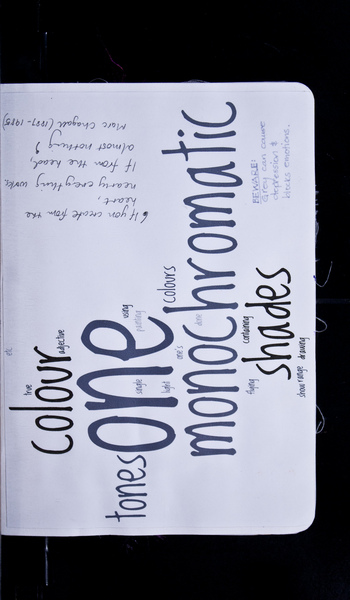 etc
true
colour
adjective
one
using
painting
single
tones
light
one's
colours
done
monochromatic
flying
containing
shades
show range drawing
BEWARE:
Grey can cause
depression &
blocks emotions.
If you create from the
heart,
nearly everything works,
If from the head,
almost nothing
Marc Chagall (1887-1985)